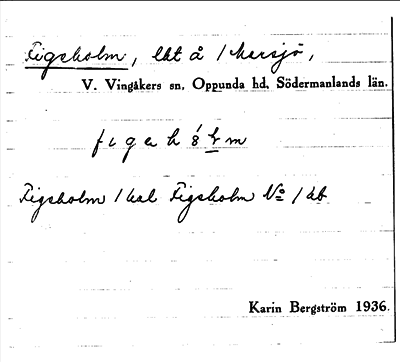 Figsholm, lht å /kersjö,
V. Vingåkers sn, Oppunda hd, Södermanlands län.
Figsholm /kal Figsholm № /kb
Karin Bergström 1936.